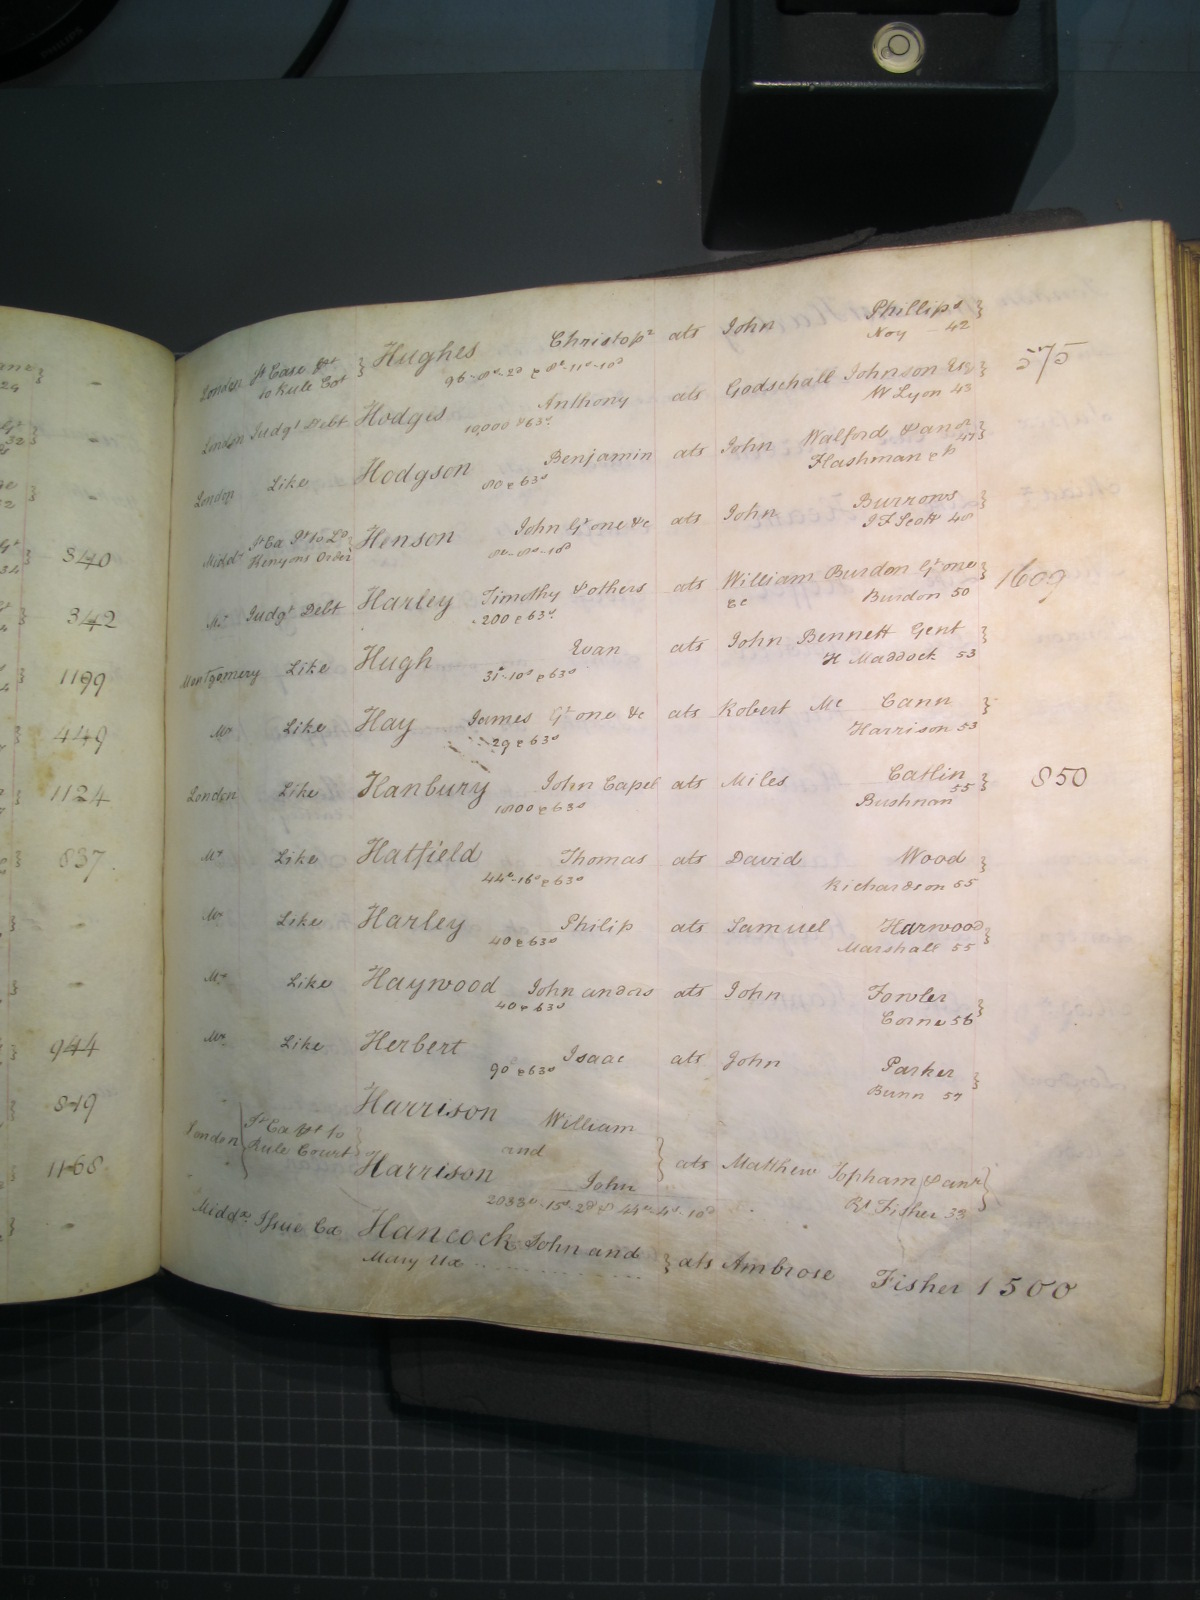 340
342
1199
449
1124
837
944
849
1168
London St Case pst to Rule Cot } Hughes Christopr ats John Phillips }
Noy 42
London Judgt Debt Hodges Anthony ats Godschall Johnson Esq } 575
10,000 & 63s W Lyon 43
London Like Hodgson Benjamin ats John Walford & anor }
80 & 63s Flashman & P 47
Middx St Ca Pt to Ld Kenyons Order } Henson John Gt one &c ats John Burrows }
J F Scott 48
Mx Judgt Debt Harley Timothy & others ats William Burdon Gt one } 1609
200 & 63s &c Burdon 50
Montgomery Like Hugh Evan ats John Bennett Gent }
31-10s & 63s H Maddock 53
Mx Like Hay James Gt one &c ats Robert Mc Cann }
29 & 63s Harrison 53
London Like Hanbury John Capel ats Miles Catlin } 850
1800 & 63s Bushnan 55
Mx Like Hatfield Thomas ats David Wood }
44-16s & 63s Richardson 55
Mx Like Harley Philip ats Samuel Harwood }
40 & 63s Marshall 55
Mx Like Haywood John and ors ats John Fowler }
40 & 63s Corne 56
Mx Like Herbert Isaac ats John Parker }
90 & 63s Bunn 57
Harrison William
London St Ca pt to Rule Court } and } ats Matthew Topham & anr }
Harrison John
Rt Fisher 33
Middx Issue Ca Hancock John and } ats Ambrose Fisher 1500
Mary Ux